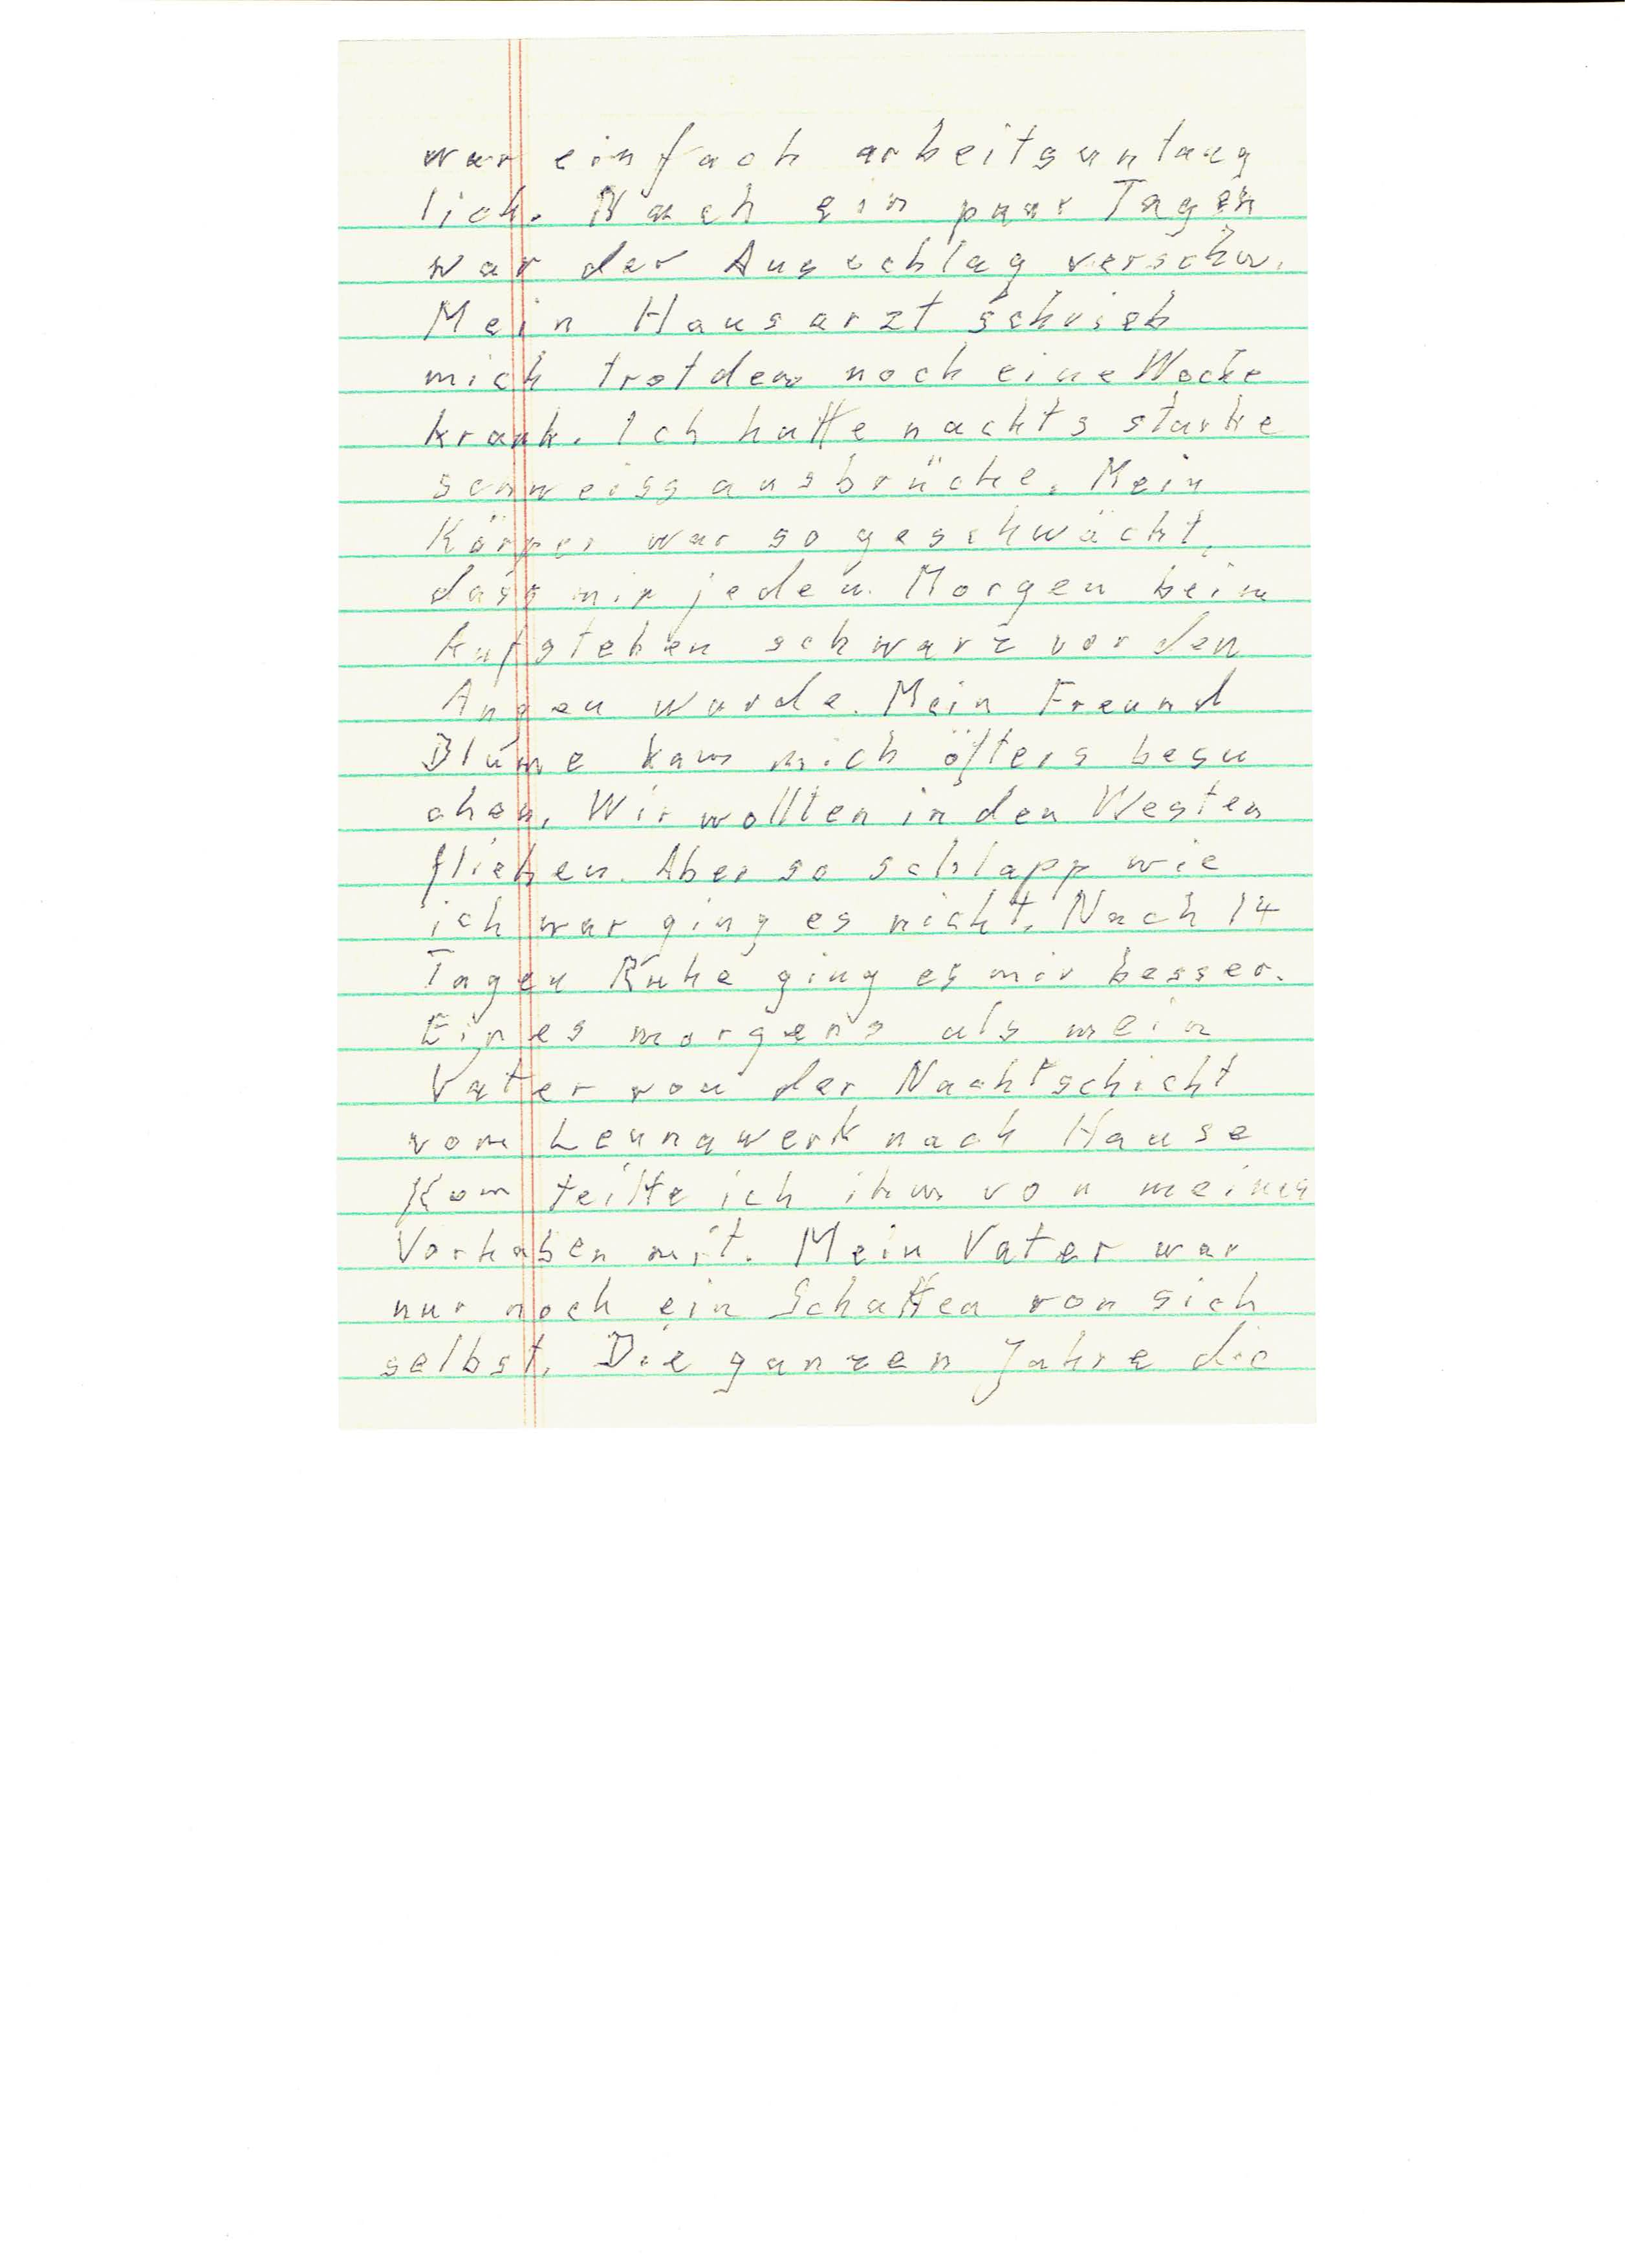 war einfach arbeitsuntaug
lich. Nach ein paar Tagen
war der Ausschlag verschw.
Mein Hausarzt schrieb
mich trotdem noch eine Woche
krank. Ich hatte nachts starke
schweissausbrüche. Mein
Körper war so geschwächt,
dass mir jeden Morgen beim
Aufstehen schwarz vor den
Augen wurde. Mein Freund
Blume kam mich öfters besu
chen. Wir wollten in den Westen
fliehen. Aber so schlapp wie
ich war ging es nicht. Nach 14
Tagen Ruhe ging es mir besser.
Eines morgens als mein
Vater von der Nachtschicht
vom Leunawerk nach Hause
Kam teilte ich ihm von meinen
Vorhaben mit. Mein Vater war
nur noch ein Schatten von sich
selbst. Die ganzen Jahre die